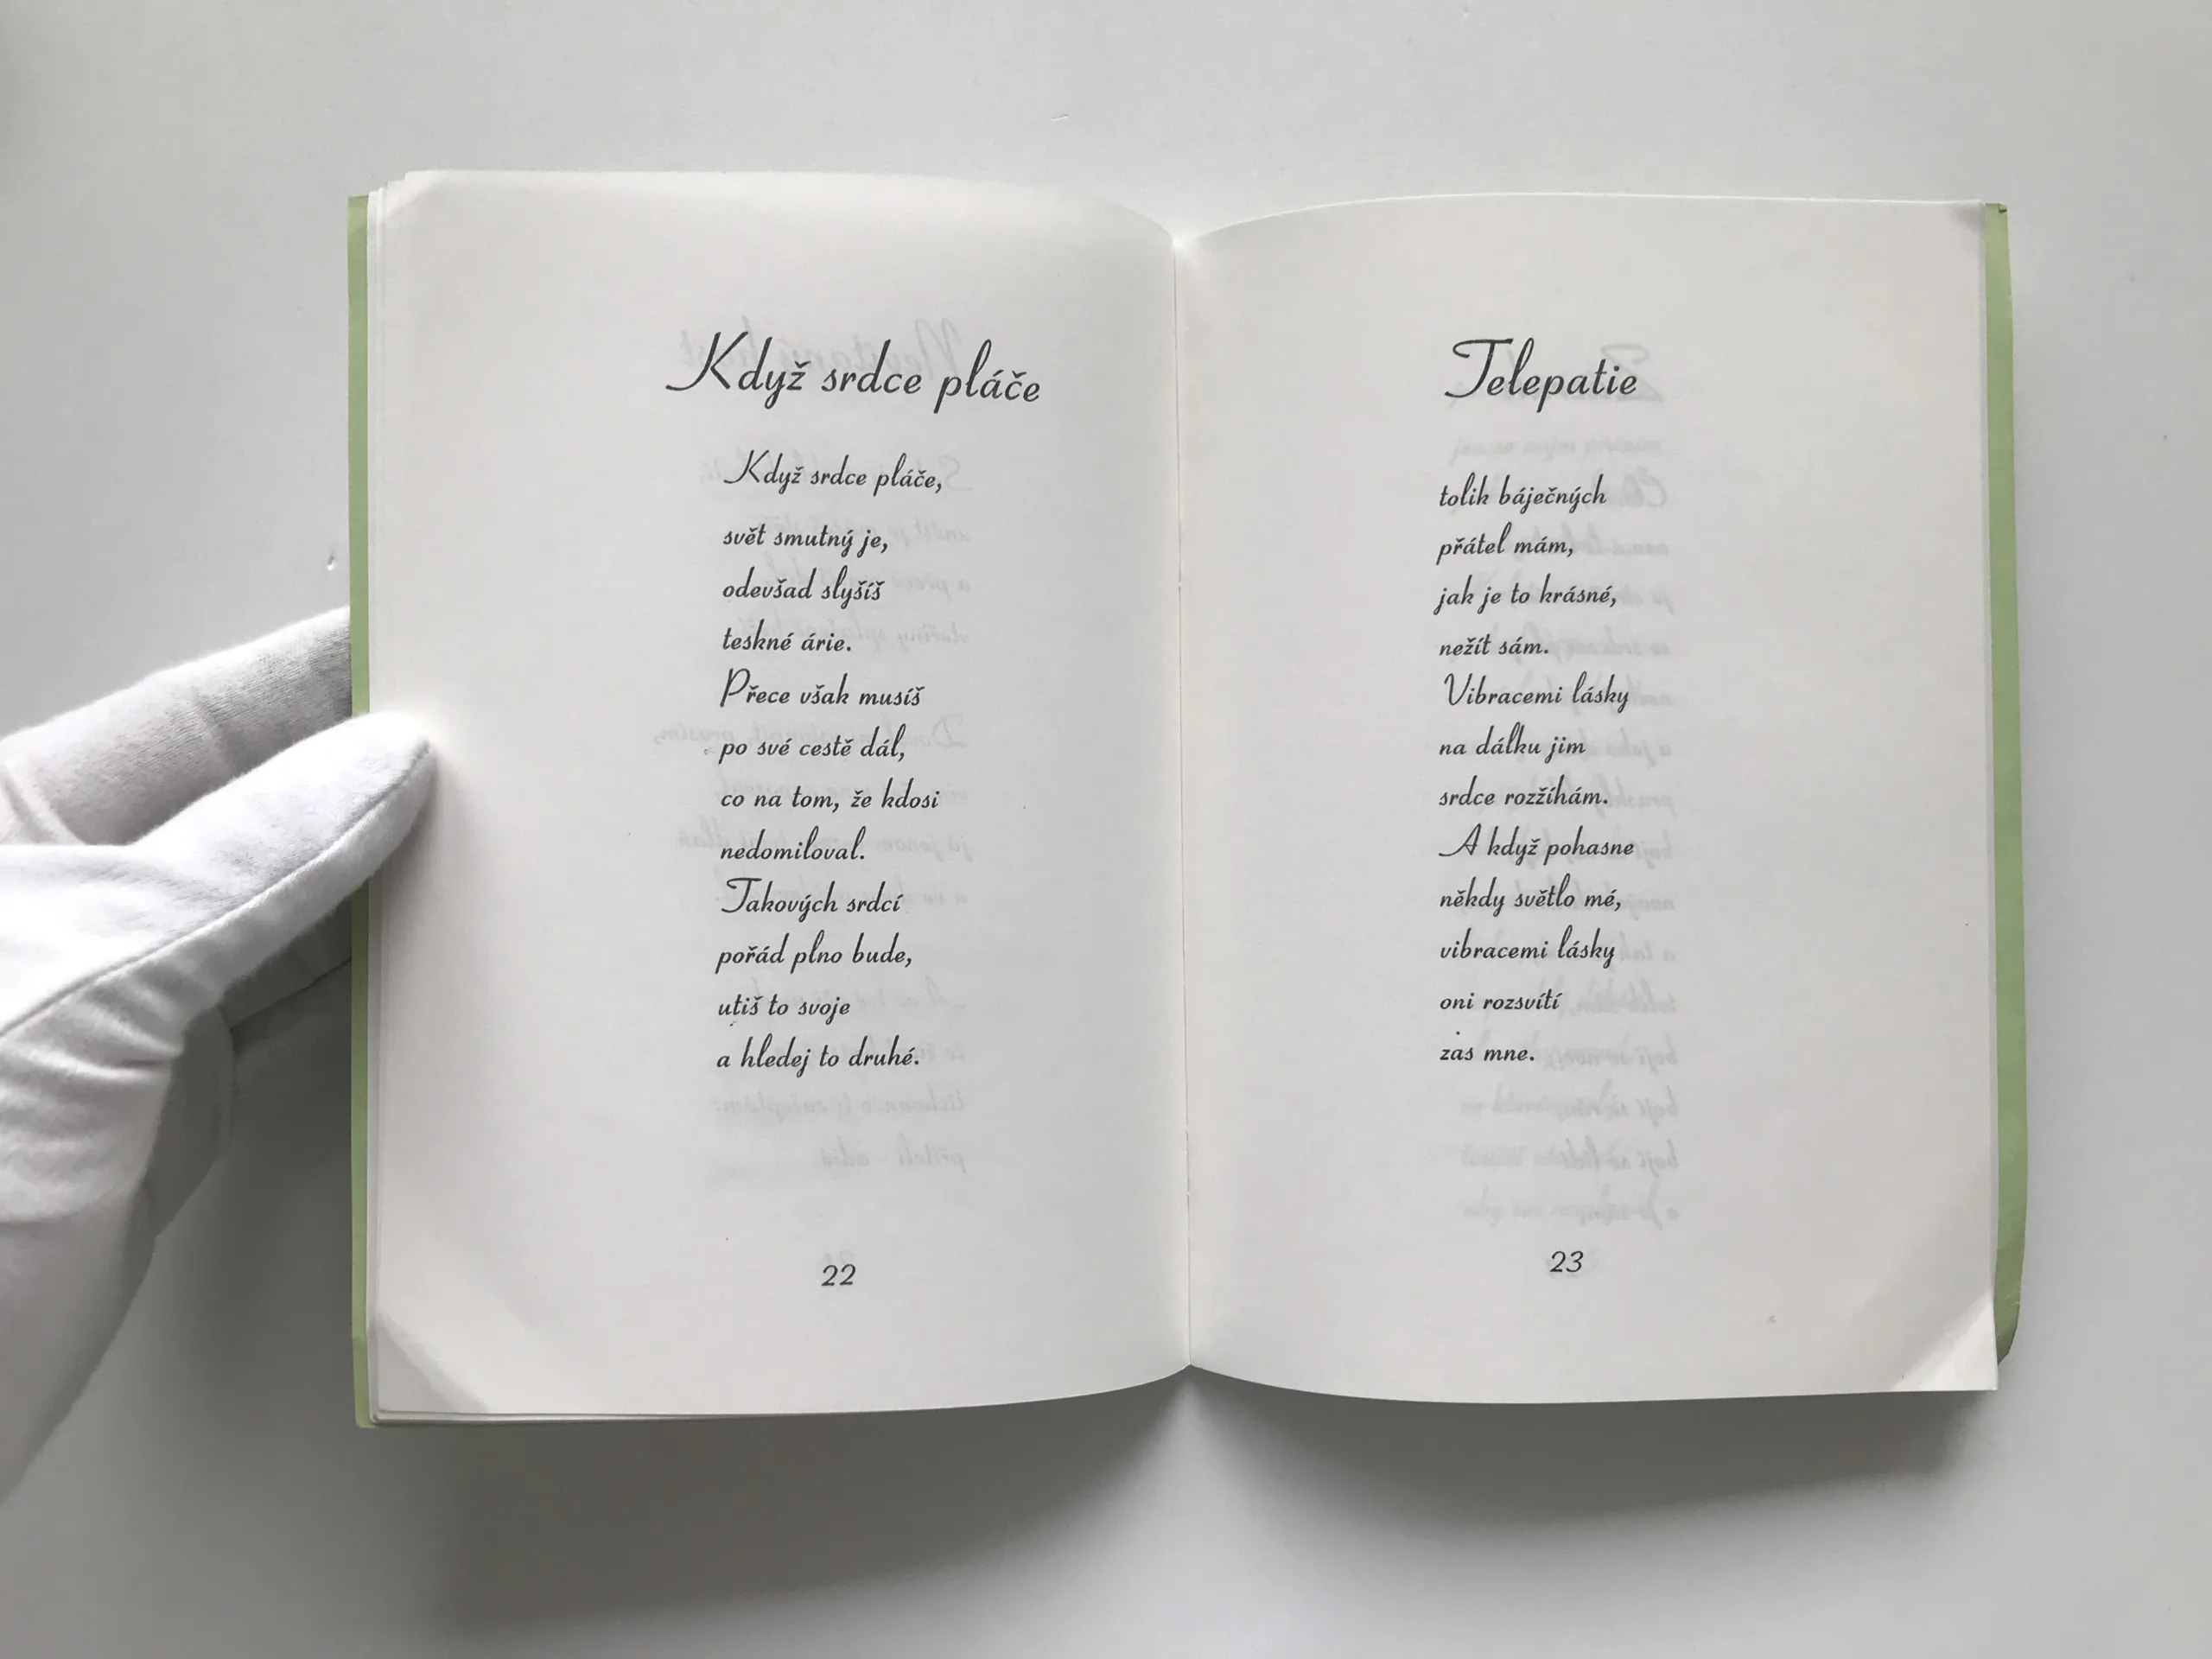 Když srdce pláče
Když srdce pláče,
svět smutný je,
odevšad slyšíš
teskné árie.
Přece však musíš
po své cestě dál,
co na tom, že kdosi
nedomiloval.
Takových srdcí
pořád plno bude,
utiš to svoje
a hledej to druhé.
22
Telepatie
tolik báječných
přátel mám,
jak je to krásné,
nežít sám.
Vibracemi lásky
na dálku jim
srdce rozžíhám.
A když pohasne
někdy světlo mé,
vibracemi lásky
oni rozsvítí
zas mne.
23